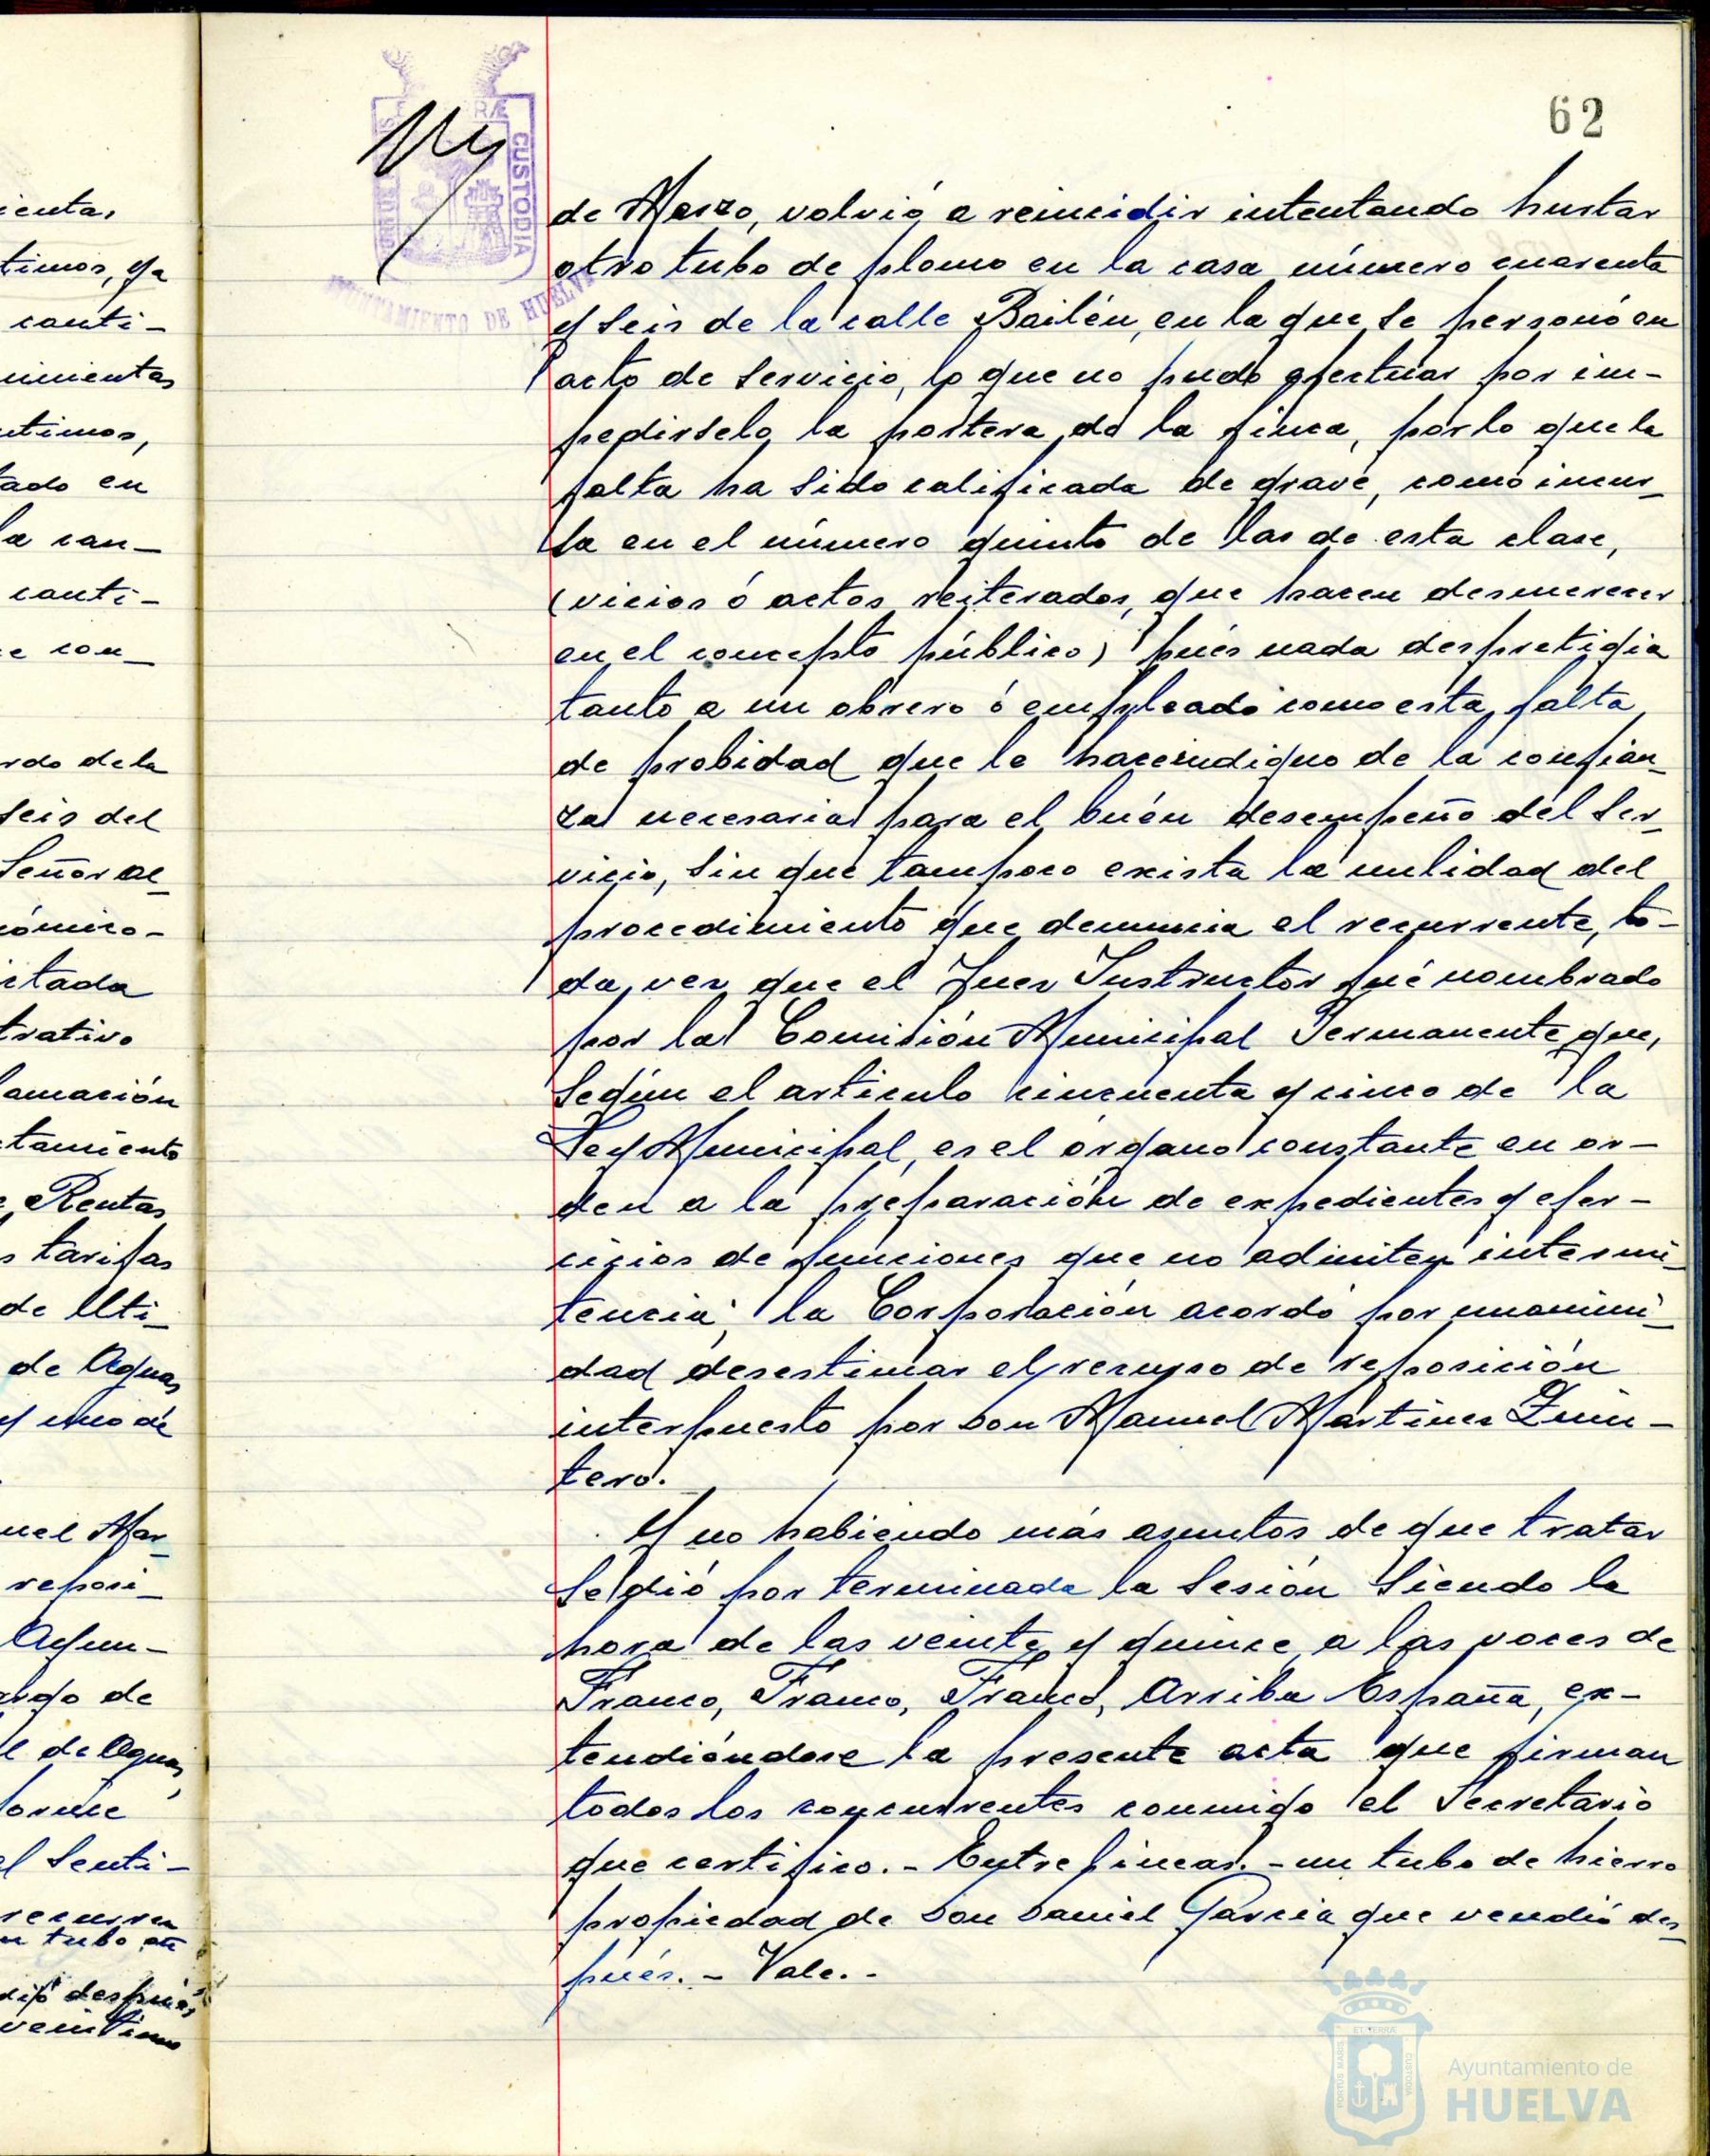 62
RÆ
CUSTODIA
AYUNTAMIENTO DE HUELVA
de Marzo, volvió a reincidir intentando hurtar
otro tubo de plomo en la casa número cuarenta
y seis de la calle Bailén, en la que se personó en
acto de servicio, lo que no pudo efectuar por im-
pedirselo la portera de la finca, por lo que la
falta ha sido calificada de grave, como incur-
sa en el número quinto de las de esta clase,
(vicios ó actos reiterados, que hacen desmerecer
en el concepto público) pués nada desprestigia
tanto a un obrero ó empleado como esta falta
de probidad que le hace indigno de la confian-
za necesaria para el buén desempeño del ser-
vicio, sin que tampoco exista la nulidad del
procedimiento que denuncia el recurrente, to-
da vez que el Juez Instructor fué nombrado
por la Comisión Municipal Permanente que,
según el articulo cincuenta y cinco de la
Ley Municipal, es el órgano constante en or-
den a la preparación de expedientes y ejer-
cicios de funciones que no admiten intermi-
tencia; la Corporación acordó por unanimi-
dad desestimar el recurso de reposición
interpuesto por Don Manuel Martinez Quin-
tero.
Y no habiendo más asuntos de que tratar
se dió por terminada la sesión siendo la
hora de las veinte y quince a las voces de
Franco, Franco, Franco, Arriba España, ex-
tendiéndose la presente acta que firman
todos los concurrentes conmigo el Secretario
que certifico.- Entre lineas.- un tubo de hierro
propiedad de Don Daniel Garcia que vendió des-
pués.- Vale.-
ienta,
timos, ya
canti-
umientas
ntimos,
tado en
la can-
canti-
e con-
rdo de la
seis del
Señor al-
ómico-
citada
trativo
lamación
tamiento
e Rentas
s tarifas
de Uti-
de Aguas
y uno de
uel Mar-
reposi-
Ayun-
argo de
l de Aguas,
forme
el senti-
recurren
n tubo de
dió después,
veintiuno
ET TERRA
PORTUS MARIS
CUSTODIA
Ayuntamiento de
HUELVA